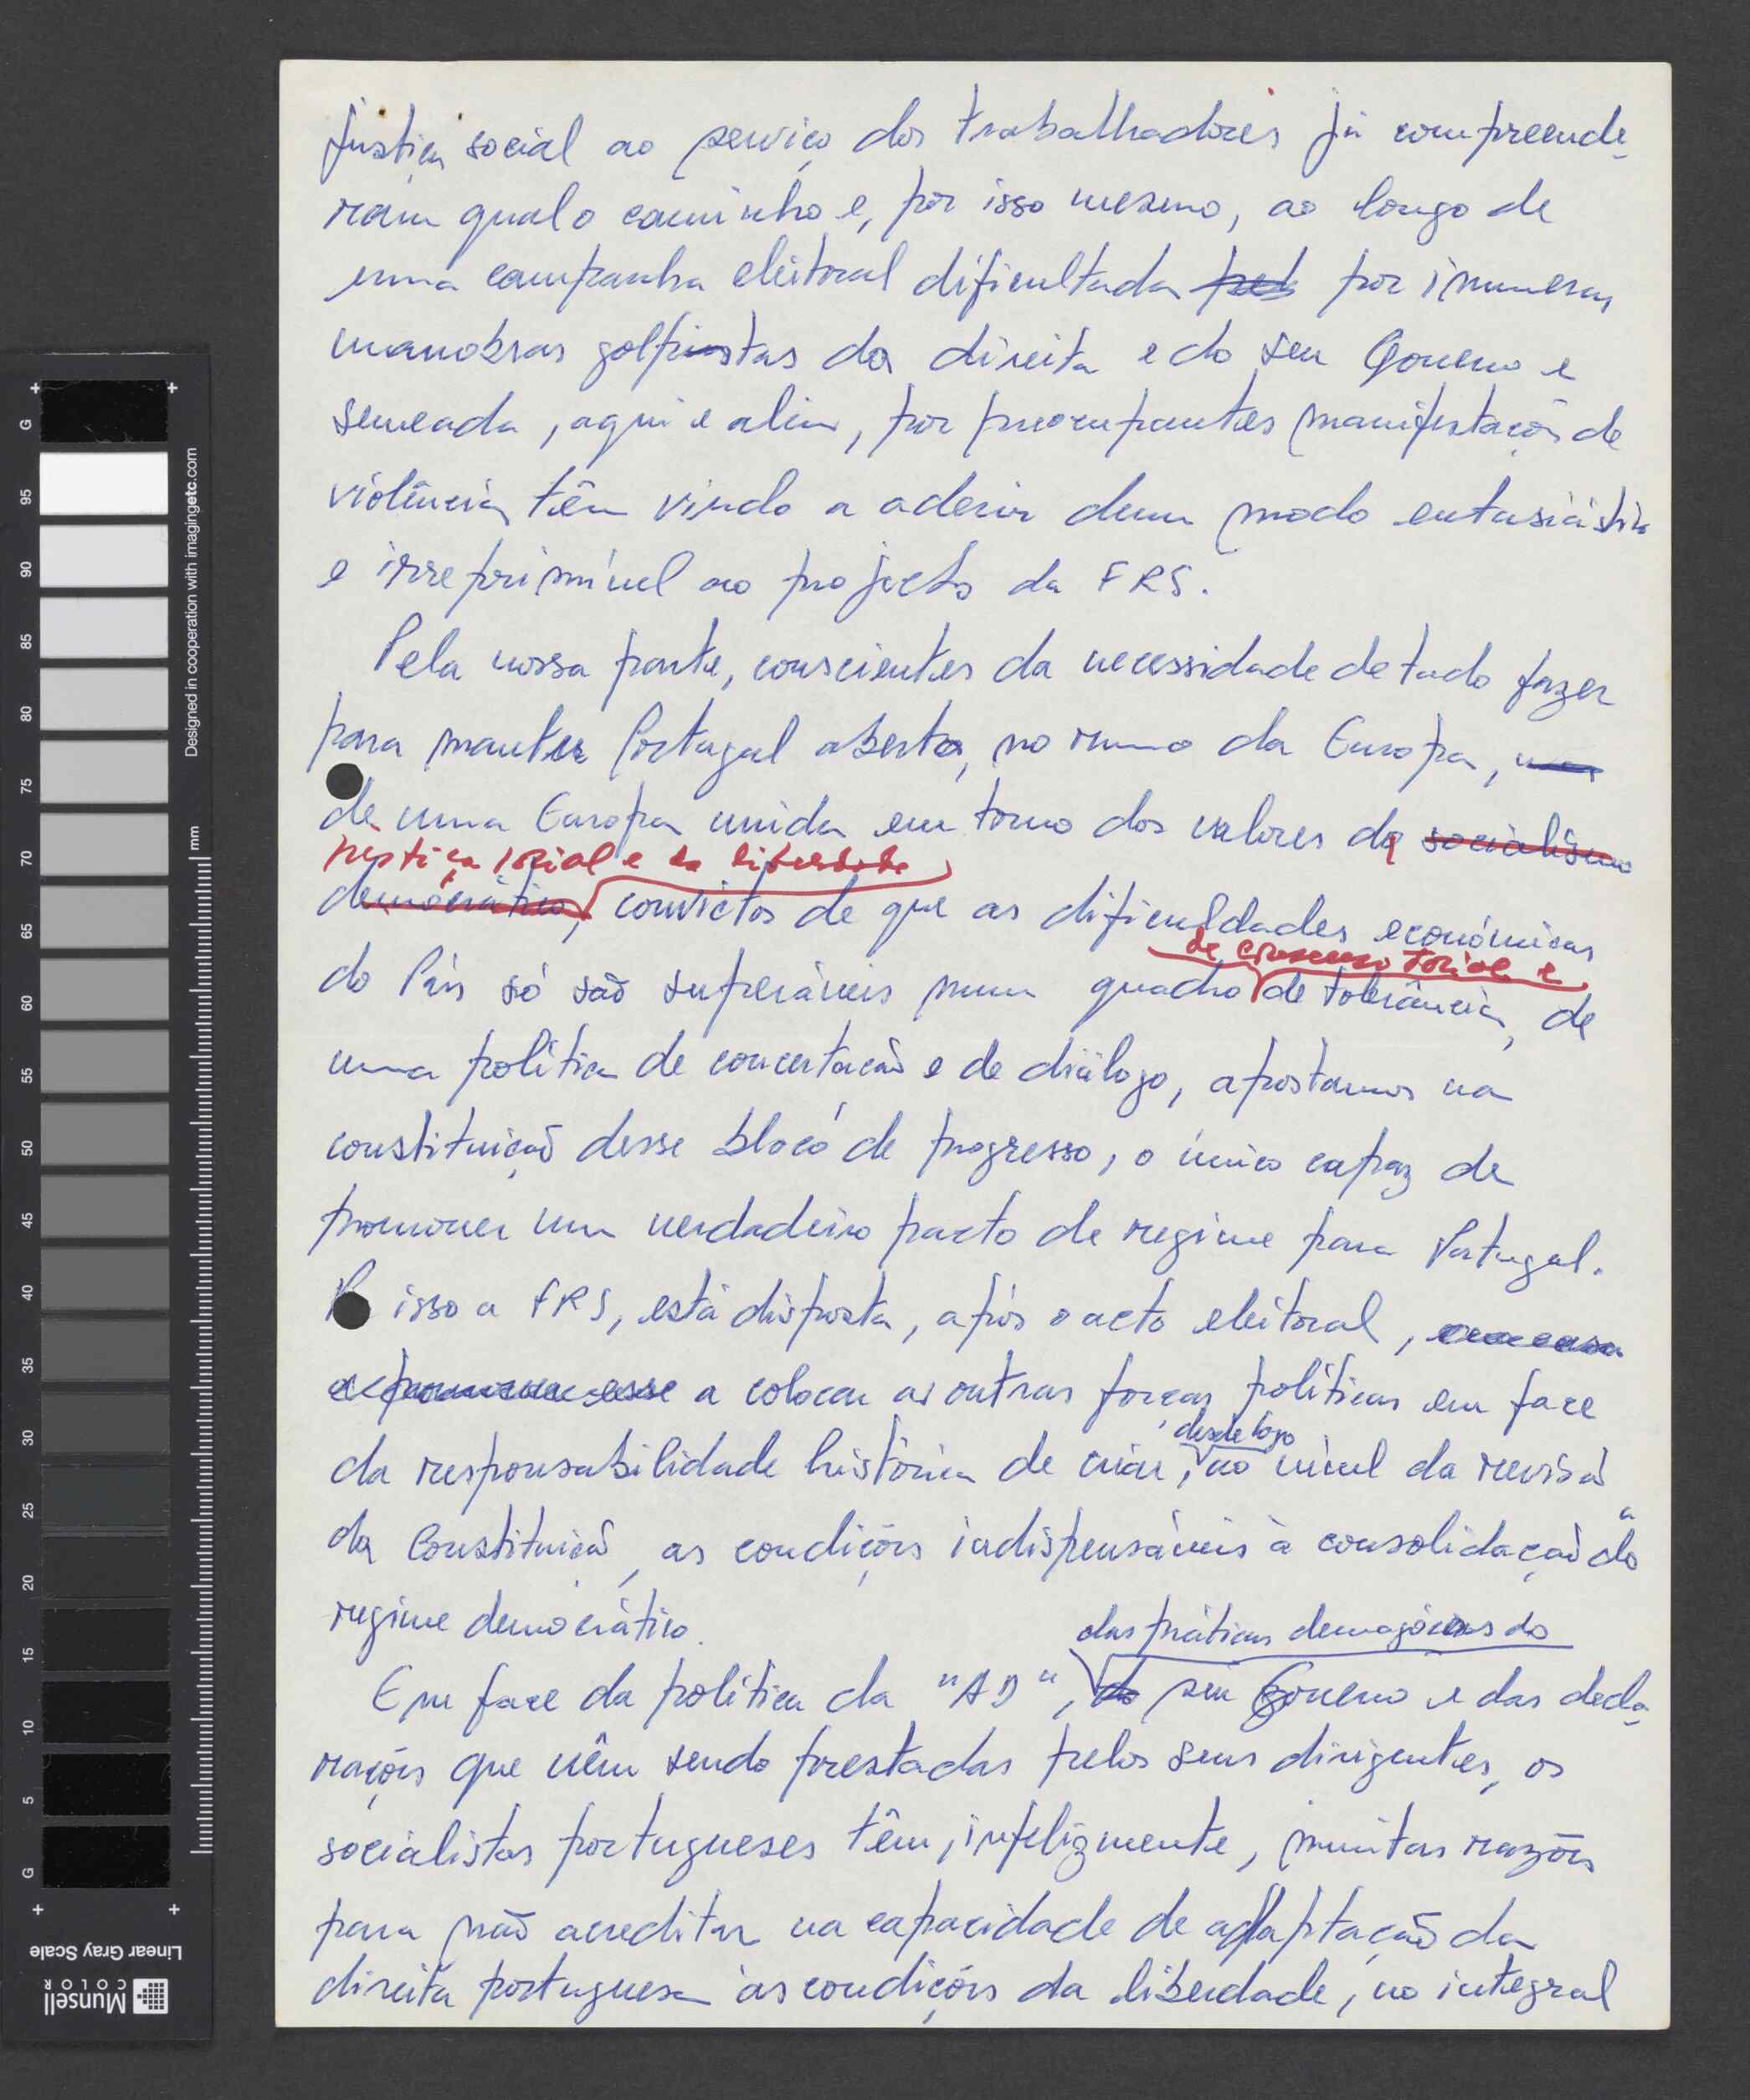 Justiça social ao serviço dos trabalhadores já compreende-
ram qual o caminho e, por isso mesmo, ao longo de
uma campanha eleitoral dificultada por inúmeras
manobras golpistas da direita e do seu Governo e
semeada, aqui e além, por preocupantes manifestações de
violência, têm vindo a aderir dum modo entusiástico
e irreprimível ao projecto da FRS.
Pela nossa parte, conscientes da necessidade de tudo fazer
para manter Portugal aberto, no rumo da Europa,
de uma Europa unida em torno dos valores da socialismo
justiça social e da liberdade
democrático, convictos de que as dificuldades económicas
de consenso social e
do País só são superáveis num quadro de tolerância, de
uma política de concertação e de diálogo, apostamos na
constituição desse bloco de progresso, o único capaz de
promover um verdadeiro pacto de regime para Portugal.
P isso a FRS, está disposta, após o acto eleitoral,
a colocar as outras forças políticas em face
desde logo
da responsabilidade histórica de criar, ao nível da revisão
da Constituição, as condições indispensáveis à consolidação do
regime democrático.
das práticas demagógicas do
Em face da política da "AD", do seu Governo e das decla-
rações que vêm sendo prestadas pelos seus dirigentes, os
socialistas portugueses têm, infelizmente, muitas razões
para não acreditar na capacidade de adaptação da
direita portuguesa às condições da liberdade, no integral
G 95 90 85 80 75 70 65 60 55 50 45 40 35 30 25 20 15 10 5 G
Designed in cooperation with imagingetc.com
mm
Linear Gray Scale
Munsell
COLOR